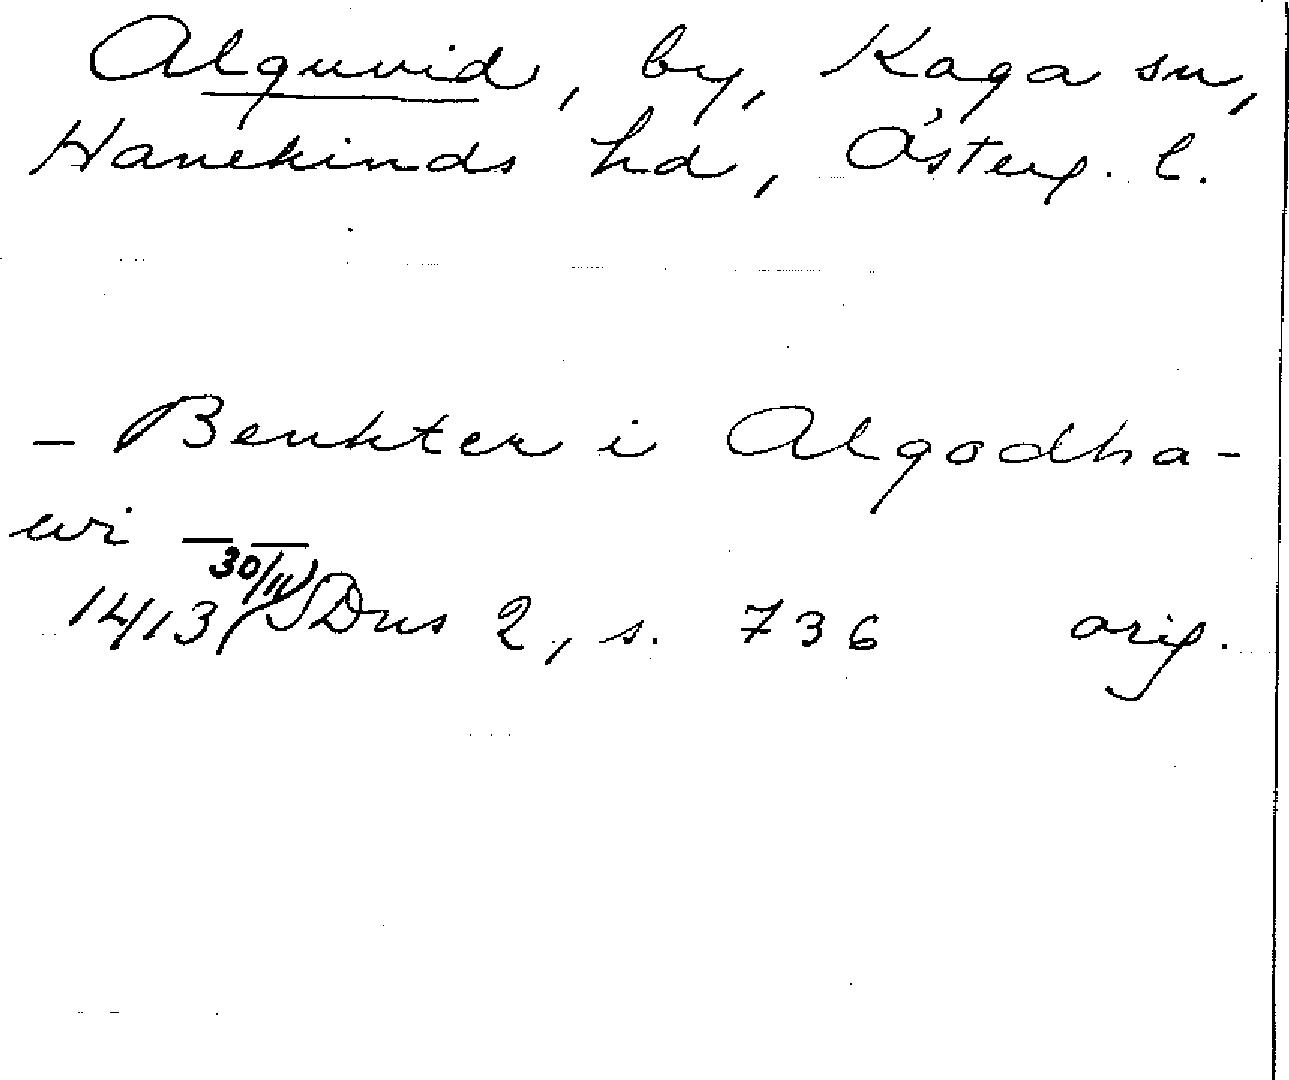 Alguvid, by, Kaga sn,
Hanekinds hd, Österg. l.
– Benkter i Algodha-
wi — —
1413 30/11 SDns 2, s. 736 orig.